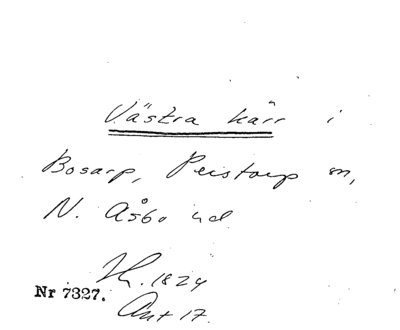 Västra kärr i
Bosarp, Perstorp sn,
N. Åsbo hd
1824
Nr 7327.
Ant 17.